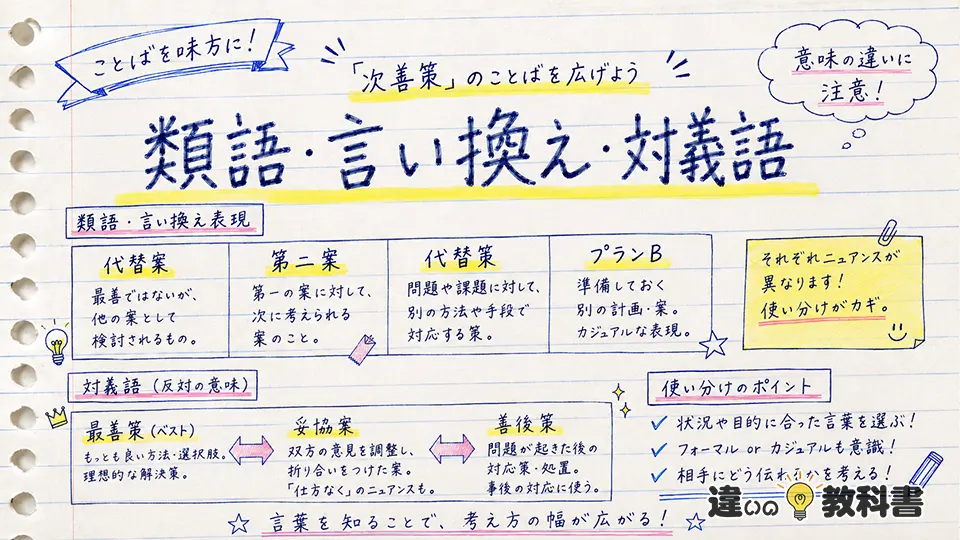 ことばを味方に！
「次善策」のことばを広げよう
意味の違いに
注意！
類語・言い換え・対義語
類語・言い換え表現
代替案
最善ではないが、
他の案として
検討されるもの。
第二案
第一の案に対して、
次に考えられる
案のこと。
代替策
問題や課題に対して、
別の方法や手段で
対応する策。
プランB
準備しておく
別の計画・案。
カジュアルな表現。
それぞれニュアンスが
異なります！
使い分けがカギ。
対義語（反対の意味）
最善策（ベスト）
もっとも良い方法・選択肢。
理想的な解決策。
妥協案
双方の意見を調整し、
折り合いをつけた案。
「仕方なく」のニュアンスも。
善後策
問題が起きた後の
対応策・処置。
事後の対応に使う。
使い分けのポイント
状況や目的に合った言葉を選ぶ！
フォーマル or カジュアルも意識！
相手にどう伝わるかを考える！
違いの教科書
言葉を知ることで、考え方の幅が広がる！